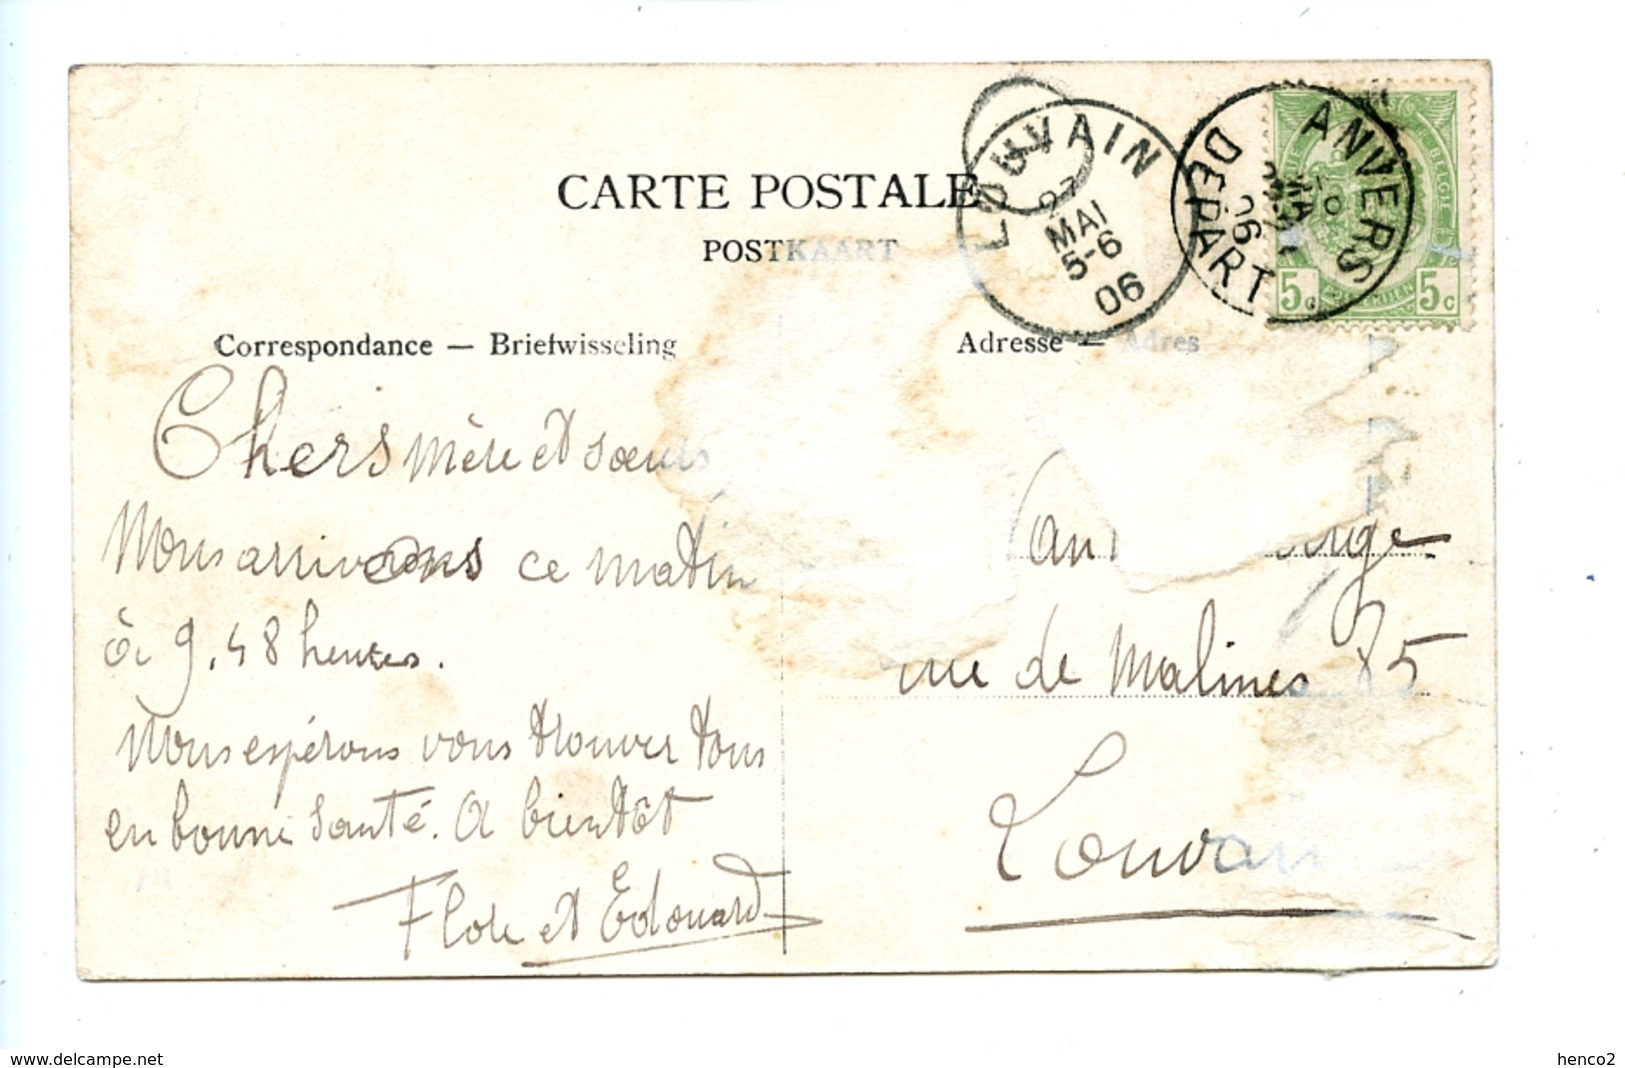 CARTE POSTALE
POSTKAART
LOUVAIN
MAI
5-6
06
ANVERS
DEPART
06
5c 5c
Correspondance — Briefwisseling
Adresse — Adres
Chers mère et sœurs
Nous arriverons ce matin
à 9.48 heures.
Nous espérons vous trouver tous
en bonne santé. A bientôt
Flore et Edouard
rue de Malines 85
Louvain
www.delcampe.net
henco2